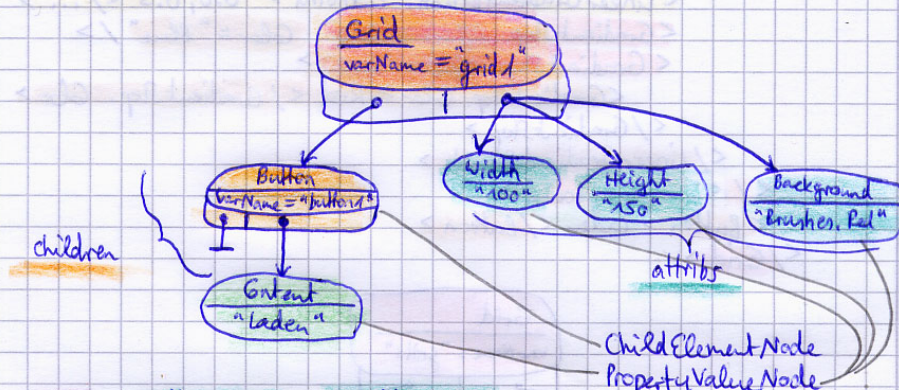 Grid
varName = "grid1"
Button
varName = "button1"
Width
"100"
Height
"150"
Background
"Brushes.Red"
children
attribs
Content
"Laden"
ChildElementNode
PropertyValueNode